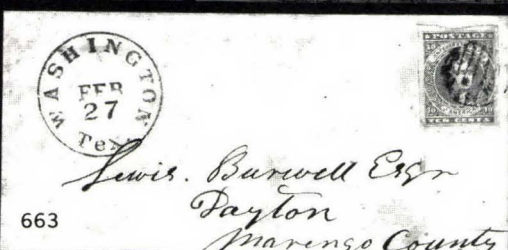 WASHINGTON
FEB
27
Tex.
POSTAGE
10 10
TEN CENTS
Lewis. Burwell Esqr
Dayton
Marengo County
663